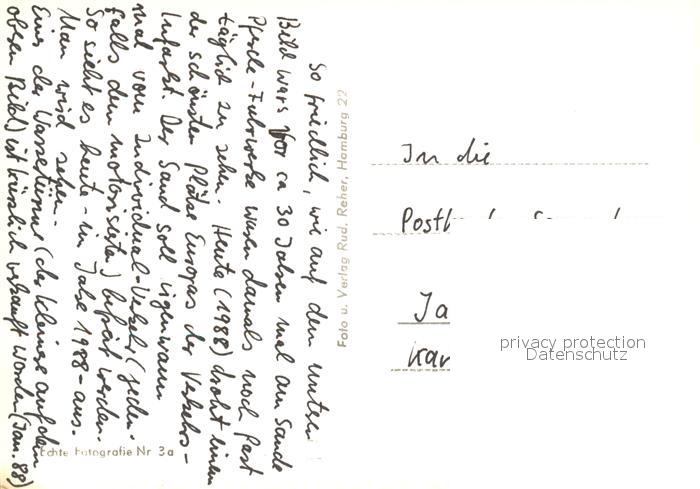 So friedlich, wie auf dem unteren
Bild wars vor ca 30 Jahren mal am Sande
Pferde-Fuhrwerke waren damals noch fast
täglich zu sehen. Heute (1988) droht einem
der schönsten Plätze Europas der Verkehrs-
Infarkt. Der Sand soll irgendwann
mal vom Individual-Verkehr (jeden-
falls dem motorisierten) befreit werden.
So sieht es heute - im Jahre 1988 - aus.
Man wird sehen.
Einer der Wassertürme (der kleinere auf dem
oberen Bild) ist kürzlich verkauft worden (Jan. 88)
Echte Fotografie Nr 3a
Foto u. Verlag Rud. Reher, Hamburg 22
In die
Ja
Kar
privacy protection
Datenschutz